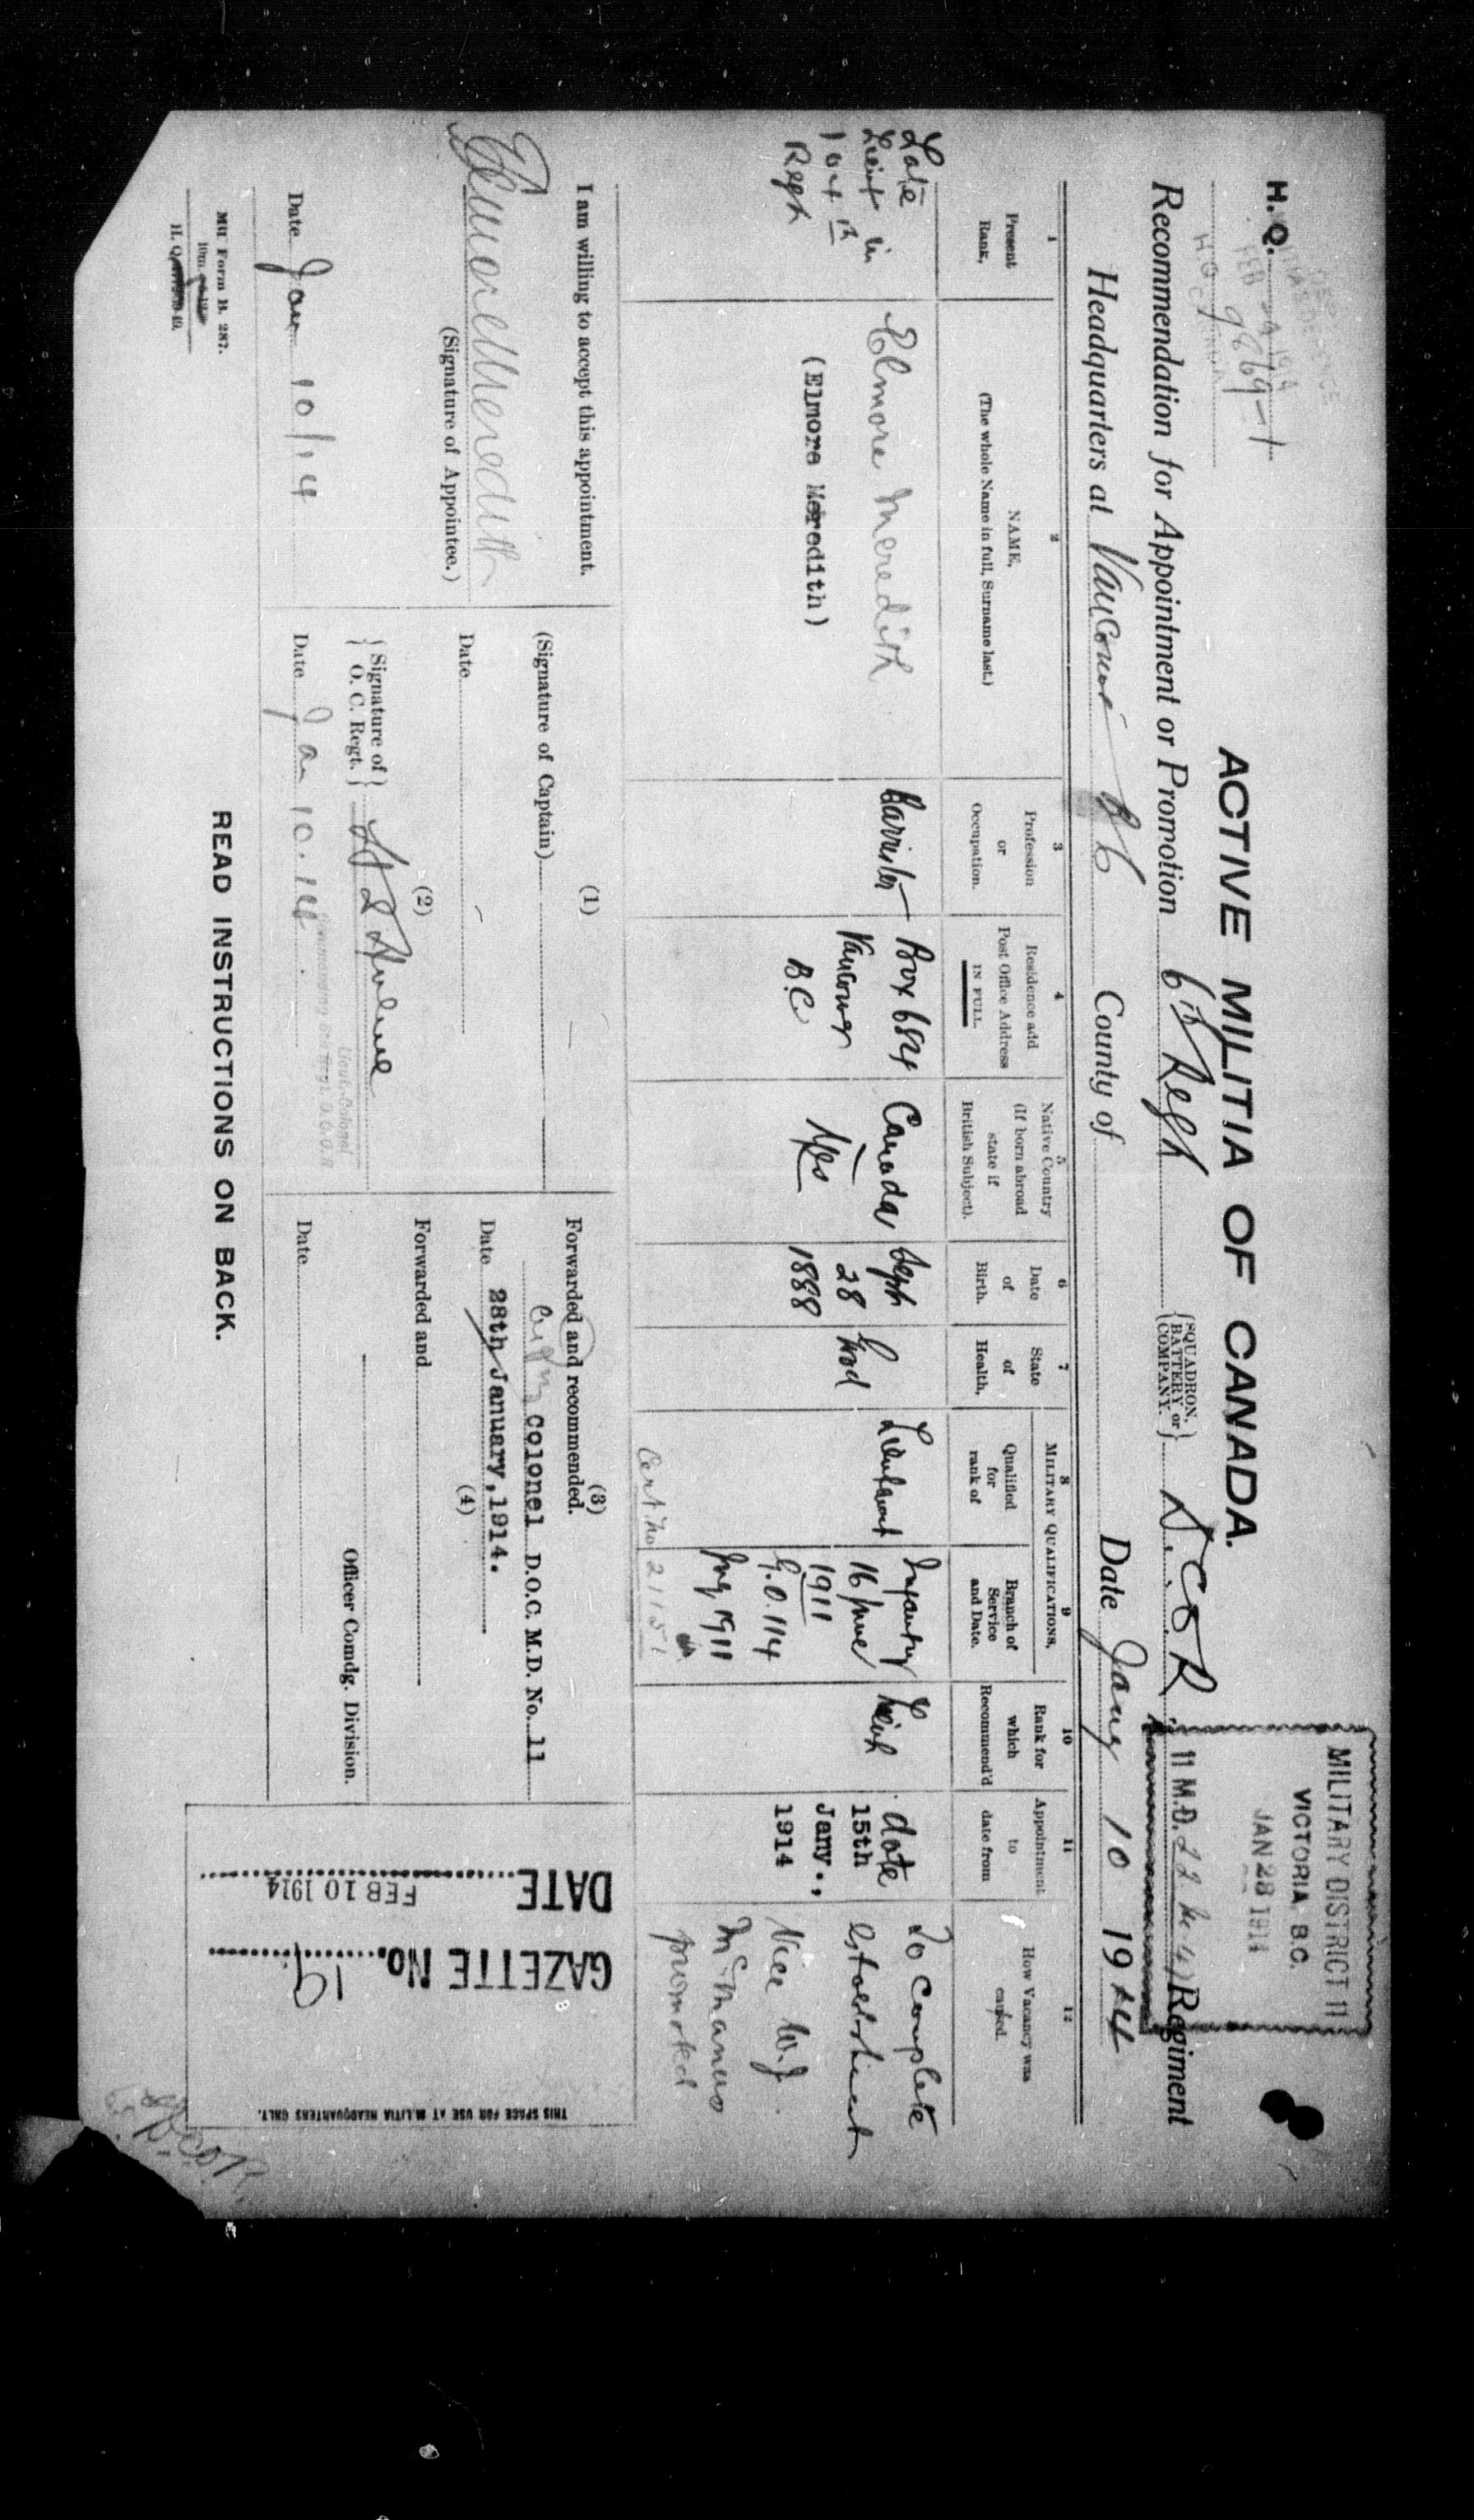 H. Q. 9869-1
MILITARY DISTRICT 11
VICTORIA, B.C.
JAN 28 1914
11 M.D.
ACTIVE MILITIA OF CANADA.
Recommendation for Appointment or Promotion 6th Regt {SQUADRON, BATTERY or COMPANY.} D.C.O.R. Regiment
Headquarters at Vancouver BC County of Date Jany 10 1914
1
Present Rank,
2
NAME,
(The whole Name in full, Surname last.)
3
Profession or Occupation.
4
Residence add Post Office Address IN FULL.
5
Native Country (If born abroad state if British Subject).
6
Date of Birth.
7
State of Health,
MILITARY QUALIFICATIONS,
8
Qualified for rank of
9
Branch of Service and Date.
10
Rank for which Recommend'd
11
Appointment to date from
12
How Vacancy was caused.
Late Lieut in 104th Regt
Elmore Meredith
(Elmore Meredith)
Barrister
Box 684 Vancouver B.C.
Canada
Yes
Sept 28 1888
Good
Lieutenant
Infantry 16 June 1911
G.O. 114
1911
Cert No 21151
Lieut
date
15th Jany., 1914
To complete establishment
Vice W.J. McManus promoted
I am willing to accept this appointment.
Elmore Meredith
(Signature of Appointee.)
Date Jan 10/14
(1)
(Signature of Captain)
Date
(2)
{Signature of O. C. Regt.}
Lieut. Colonel
Date Jan 10.14.
(3)
Forwarded and recommended.
Colonel D.O.C. M.D. No. 11
Date 28th January, 1914.
(4)
Forwarded and
Officer Comdg. Division.
Date
Mil Form B. 287.
H. Q.
READ INSTRUCTIONS ON BACK.
THIS SPACE FOR USE AT MILITIA HEADQUARTERS ONLY.
GAZETTE No. 19
DATE FEB 10 1914